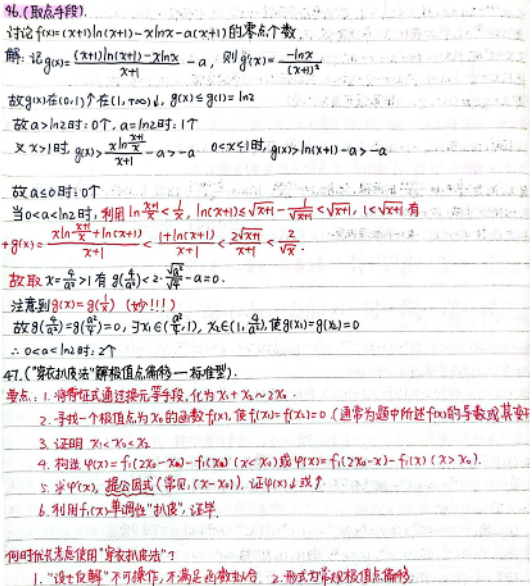 46.(取点手段).
讨论f(x)=(x+1)ln(x+1)-xlnx-a(x+1)的零点个数.
解: 记g(x)=\frac{(x+1)ln(x+1)-xlnx}{x+1}-a, 则g'(x)=\frac{-lnx}{(x+1)^2}
故g(x)在(0,1)↑在(1,+∞)↓, g(x)≤g(1)=ln2
故a>ln2时:0个, a=ln2时:1个
又x>1时, g(x)>\frac{xln\frac{x+1}{x}}{x+1}-a>-a 0<x≤1时, g(x)>ln(x+1)-a>-a
故a≤0时:0个
当0<a<ln2时, 利用ln\frac{x+1}{x}<\frac{1}{x}, ln(x+1)≤\sqrt{x+1}-\frac{1}{\sqrt{x+1}}<\sqrt{x+1}, 1<\sqrt{x+1}有
+g(x)=\frac{xln\frac{x+1}{x}+ln(x+1)}{x+1}<\frac{1+ln(x+1)}{x+1}<\frac{2\sqrt{x+1}}{x+1}<\frac{2}{\sqrt{x}}.
故取x=\frac{4}{a^2}>1有g(\frac{4}{a^2})<2·\frac{\sqrt{a^2}}{\sqrt{4}}-a=0.
注意到g(x)=g(\frac{1}{x}) (妙!!!)
故g(\frac{4}{a^2})=g(\frac{a^2}{4})=0, ∃x₁∈(\frac{a^2}{4},1), x₂∈(1,\frac{4}{a^2}),使g(x₁)=g(x₂)=0
∴0<a<ln2时:2个
47.("穿衣扒皮法"解极值点偏移—标准型).
要点: 1. 将待证式通过换元等手段,化为x₁+x₂~2x₀.
2. 寻找一个极值点为x₀的函数f₁(x),使f₁(x₁)=f₁(x₂)=0.(通常为题中所述f(x)的导数或其变
3. 证明 x₁<x₀<x₂
4. 构造φ(x)=f₁(2x₀-x)-f₁(x)(x<x₀)或φ(x)=f₁(2x₀-x)-f₁(x)(x>x₀).
5. 求φ'(x), 提公因式(常见:(x-x₀)),证φ(x)↓或↑
6. 利用f₁(x)单调性"扒皮",证毕
何时优先考虑使用"穿衣扒皮法"?
1. "设七反解"不可操作,不满足函数拟合 2. 形式为常规极值点偏移